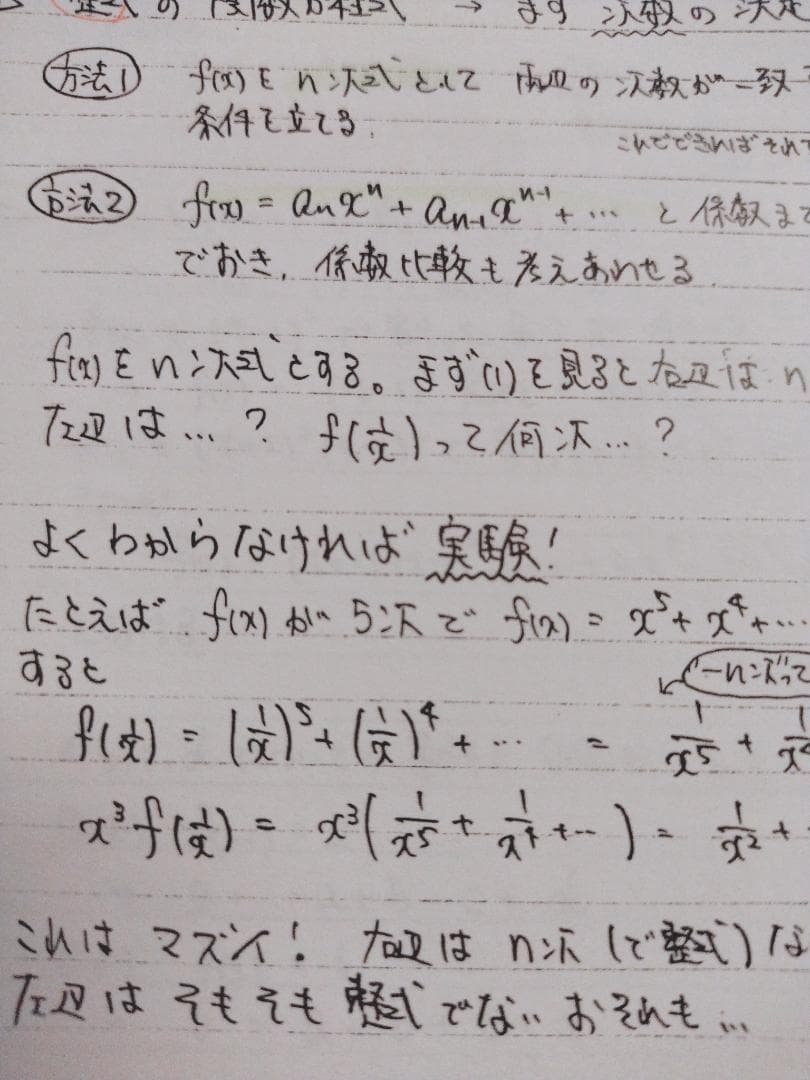 整式の関数方程式 → まず 次数の決定
方法1 f(x) を n次式として 両辺の次数が一致
条件を立てる.
これでできればそれで
方法2 f(x) = aₙxⁿ + aₙ₋₁xⁿ⁻¹ + … と係数まで
でおき, 係数比較も考えあわせる.
f(x) を n次式とする。まず(1)を見ると 右辺は n
左辺は…? f(1/x)って何次…?
よくわからなければ 実験!
たとえば f(x) が 5次で f(x) = x⁵ + x⁴ + …
すると
"-n次"って
f(1/x) = (1/x)⁵ + (1/x)⁴ + … = 1/x⁵ + 1/x⁴
x³f(1/x) = x³(1/x⁵ + 1/x⁴ + …) = 1/x² +
これは マズイ! 右辺は n次 (で整式) な
左辺は そもそも 整式でない おそれも…